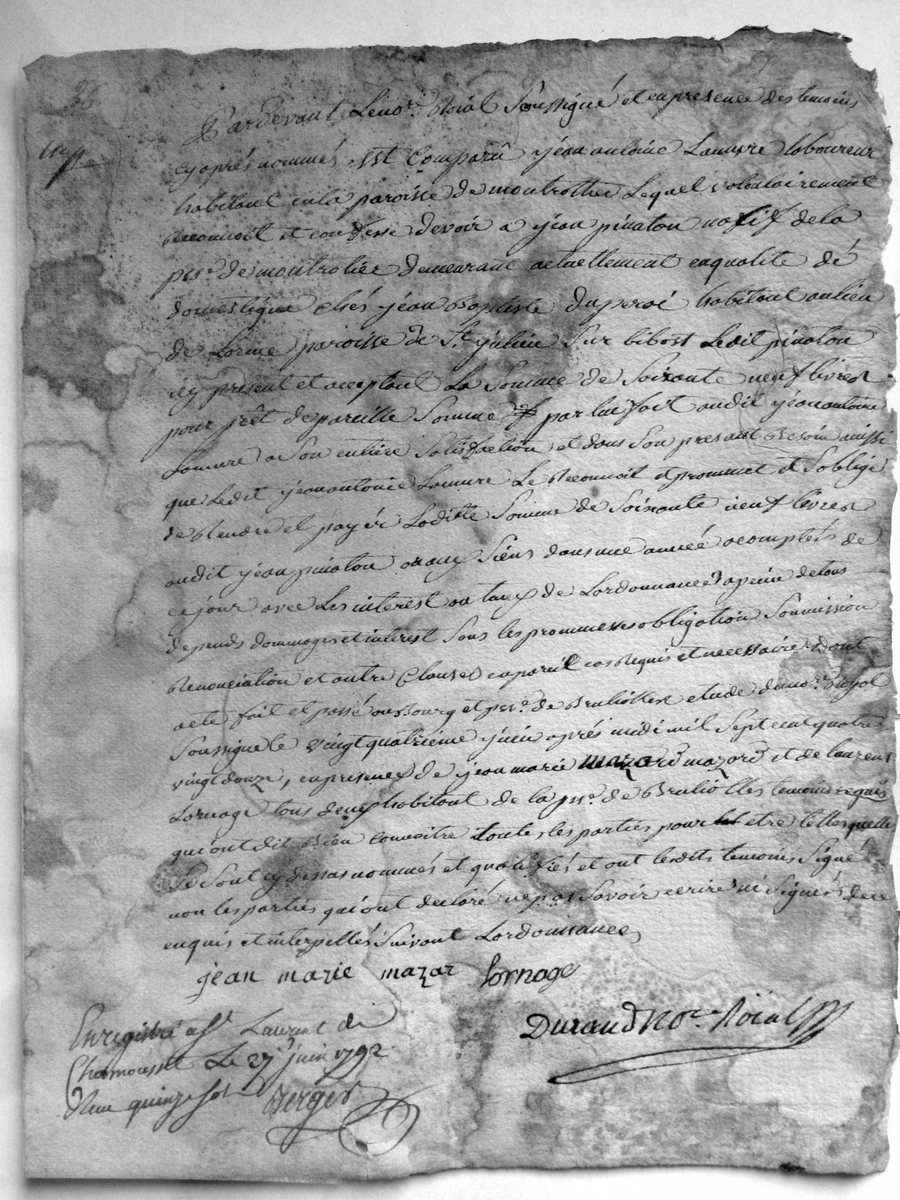 Pardevant Le nore. Roial Soussigné et en presence des temoins
cy aprés nommés Est Comparû jean antoine Lamure laboureur
habitant en la paroisse de montrotier Lequel volontairement
Reconnoit et confesse devoir a jean pinaton natif de la
psse. de montrotier demeurant actuellement en qualité de
domestique chés jean Baptiste duperai habitant au lieu
de Lorme paroisse de St. julien Sur bibost Ledit pinaton
icy present et acceptant La Somme de Soixante neuf livres
pour prêt de pareille Somme par lui fait audit jean antoine
Lamure a Son entiere Satisfaction, et dans Son presant Besoin aussi
que Ledit jean antoine Lamure Le Reconnoit et prommet et S'oblige
de Rendre et payér Laditte Somme de Soixante neuf livres
audit jean pinaton ou aux Siens dans une année a comptés de
ce jour avec Les interest au taux de Lordonnance a peine de tous
depends dommages et interest Sous les prommesses obligation Soumission
Renonciation et autre Clauses en pareil cas Requis et necessaire Dont
acte fait et passé au Bourg et psse. de Brullioles etude du nore. Royal
Soussigné le vingt quatriéme juin aprés midi mil Sept cent quatre
vingt douze, en presence de jean marie mazard et de laurent
Lornage tous deux habitant de la psse. de Brulliolles temoins requis
qui ont dit Bien connoitre toutes les parties pour etre telles quelle
Se Sont cy dessus nommés et qualifiés et ont lesdits temoins Signé
non les parties qui ont declaré ne pas Savoir ecrire ni Signés de ce
enquis et interpellés Suivant Lordonnance
jean marie mazar Lornage
Durand Nore. Roial
Enregistré a St. Laurent de
Chamousset Le 27 juin 1792
Reçu quinze sols Berger